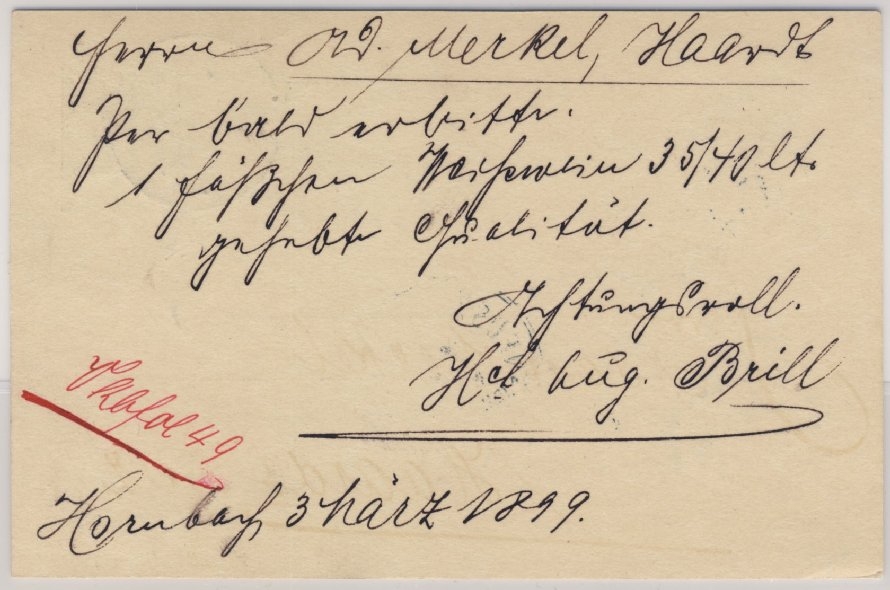 Herrn Ad. Merkel, Haardt
Per bald erbitte.
1 fäßchen Weißwein 35/40 ltr
gehabte Qualität.
Achtungsvoll.
Hch Aug. Brill
49
Hornbach, 3 März 1899.